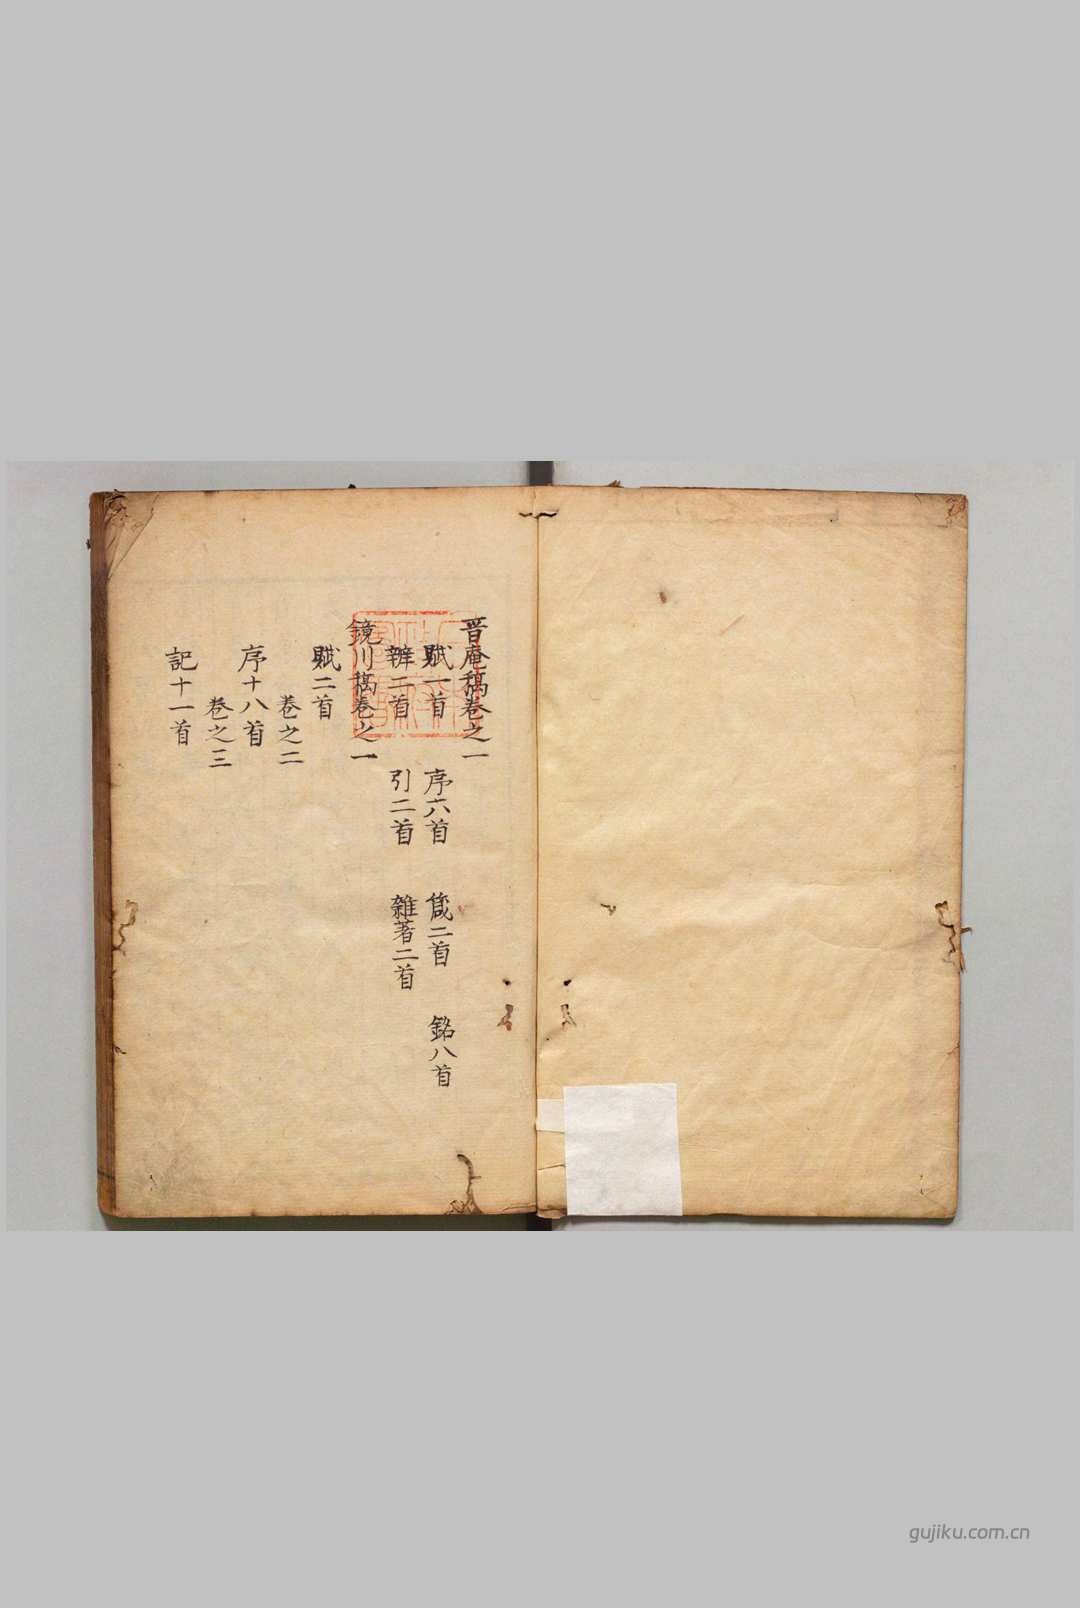 晋庵稿卷之一
賦一首 序六首 箴二首 銘八首
辨二首 引二首 雜著二首
鏡川稿卷之一
賦二首
卷之二
序十八首
卷之三
記十一首
gujiku.com.cn